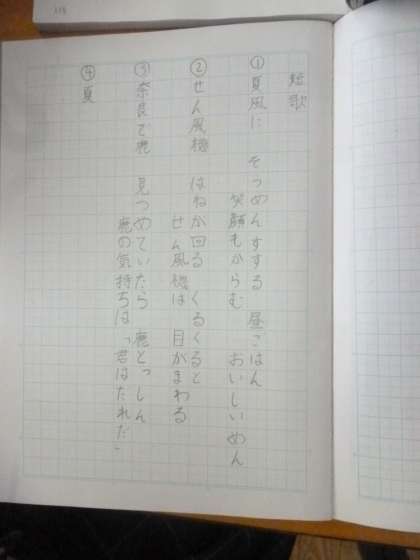 短歌
①夏風に そうめんすする 昼ごはん
笑顔もからむ おいしいめん
②せん風機 はねが回る くるくると
せん風機は 目がまわる
③奈良で鹿 見つめていたら 鹿とっしん
鹿の気持ちは「君はだれだ」
④夏